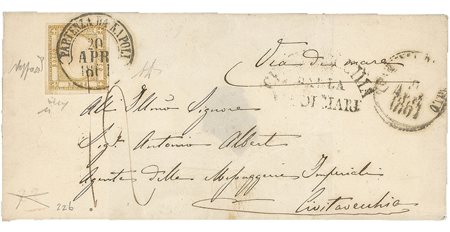 PARTENZA DA NAPOLI
20
APR
1861
Via di mare
DALLA
VIA DI MARE
APR
1861
All' Ill.mo Signore
Sig.r Antonio Albert
Agente delle Messaggerie Imperiali
Civitavecchia
226